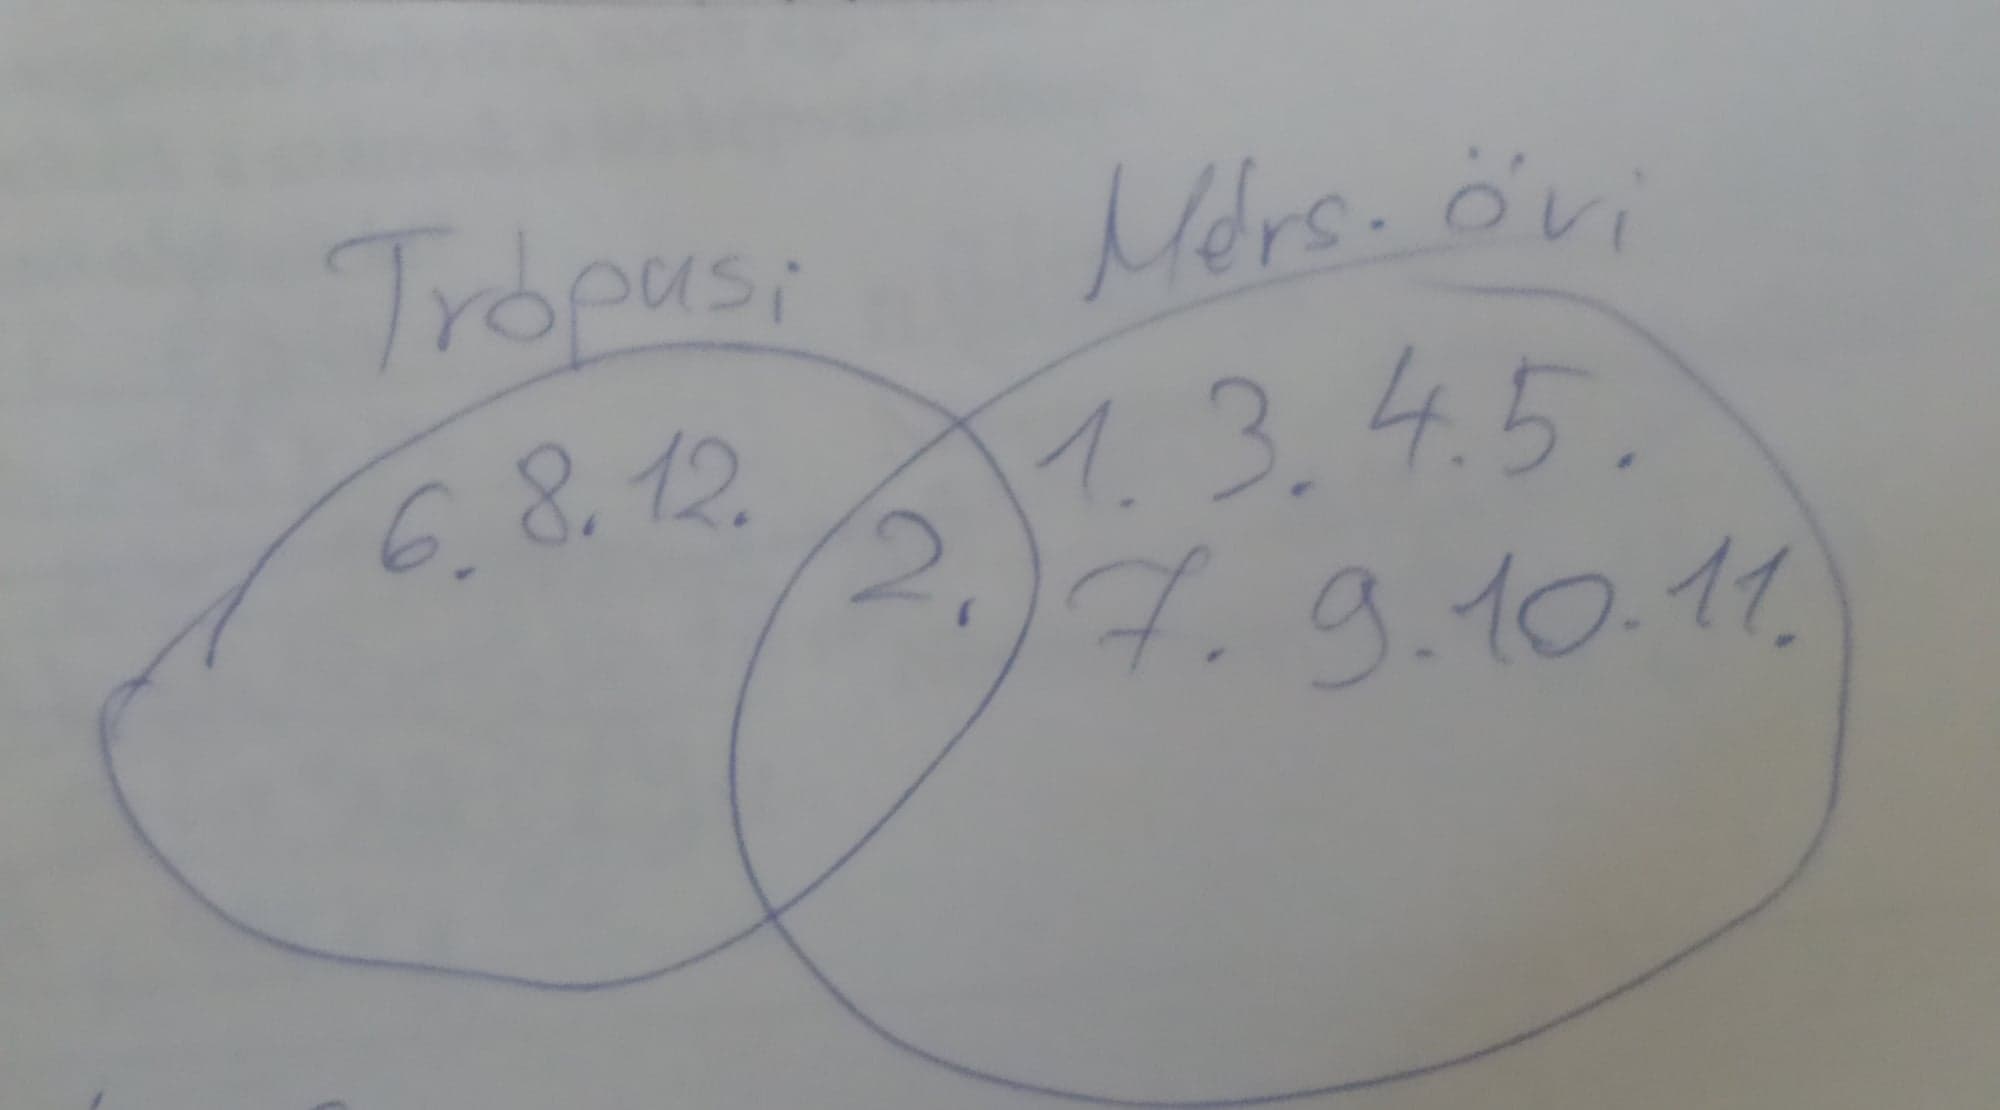 Trópusi
Mérs. övi
6. 8. 12.
2.
1. 3. 4. 5.
7. 9. 10. 11.